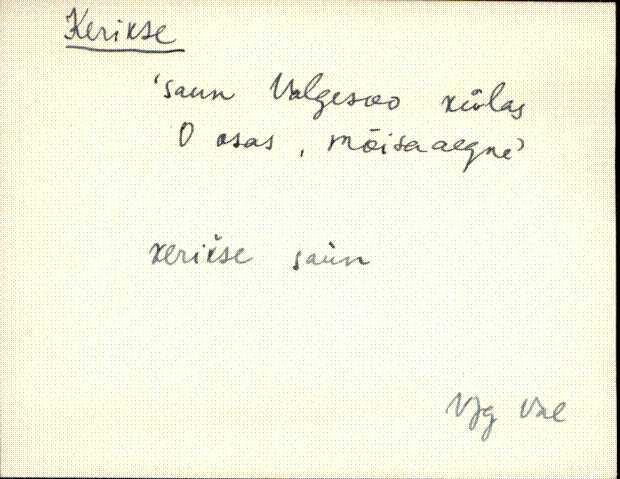 Kerikse
'saun Valgesoo külas
O osas, mõisaaegne'
kerikse saun
Vjg Val